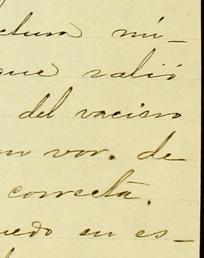 ctura mi-
que salió
del vacismo
on vor. de
correcta.
uedo en es-